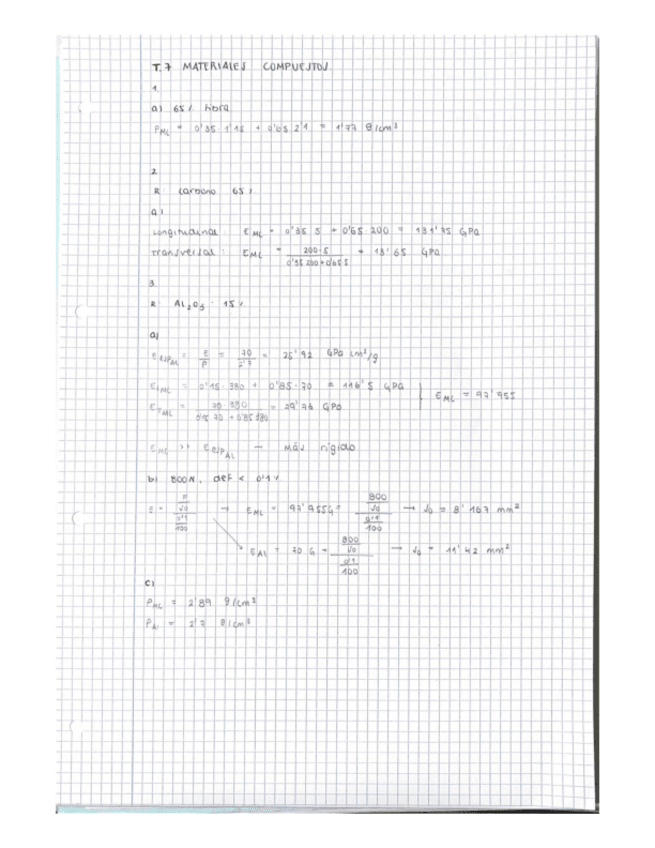 T.7 MATERIALES COMPUESTOS
1.
a) 65% fibra
ρML = 0'35 · 1'15 + 0'65 · 2'1 = 1'77 g/cm³
2.
R: carbono 65%
a)
longitudinal: EML = 0'35 · 5 + 0'65 · 200 = 131'75 GPa
transversal: EML = 200·5 / 0'35·200+0'65·5 = 13'65 GPa
3.
R: Al₂O₃ · 15%
a)
E ESPAL = E/ρ = 70/2'7 = 25'92 GPa cm³/g
E∥ML = 0'15 · 380 + 0'85 · 70 = 116'5 GPa
EML = 97'955
70·380 / 0'15·70 + 0'85·380 = 79'76 GPa
EML >> E ESPAL → más rígido
b) 800N, def < 0'1%
→ EML = 97'955G = 800/S₀ / 0'1/100 → S₀ = 8'167 mm²
EAL = 70 G = 800/S₀ / 0'1/100 → S₀ = 11'42 mm²
c)
ρML = 2'89 g/cm³
ρAl = 2'7 g/cm³